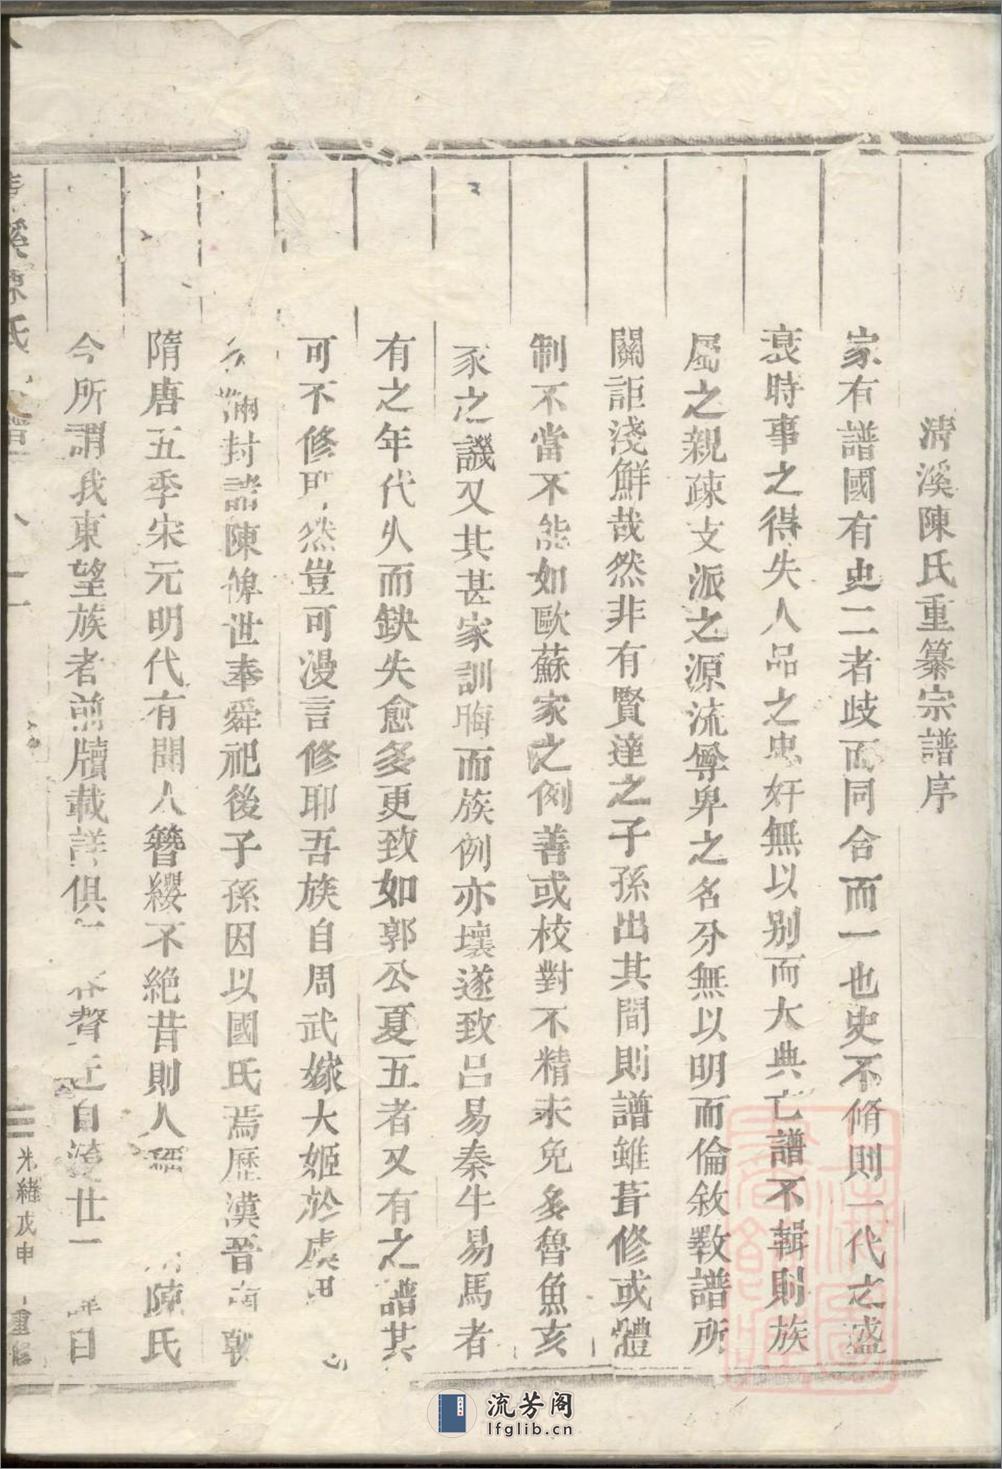 清溪陳氏重纂宗譜序
家有譜國有史二者歧而同合而一也史不脩則一代之盛
衰時事之得失人品之忠奸無以别而大典亡譜不輯則族
屬之親疎支派之源流尊卑之名分無以明而倫敘斁譜所
關詎淺鮮哉然非有賢達之子孫出其間則譜雖葺修或體
制不當不能如歐蘇家之例善或校對不精未免多魯魚亥
豕之譏又其甚家訓晦而族例亦壞遂致呂易秦牛易馬者
有之年代久而缺失愈多更致如郭公夏五者又有之譜其
可不修耶然豈可漫言修耶吾族自周武嫁大姬於虞
滿封諸陳俾世奉舜祀後子孫因以國氏焉歷漢晉南朝
隋唐五季宋元明代有聞人簪纓不絕昔則人稱 陳氏
今所謂我東望族者前牘載詳俱 聲近自 世 自
溪陳氏 譜
光緒戊申
重修
流芳阁
lfglib.cn